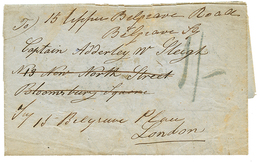 Try) 15 Upper Belgrave Road
Belgrave Sq
Captain Adderley W Sleigh
No 13 New North Street
Bloomsbury Square
Try 15 Belgrave Place
London
1/-